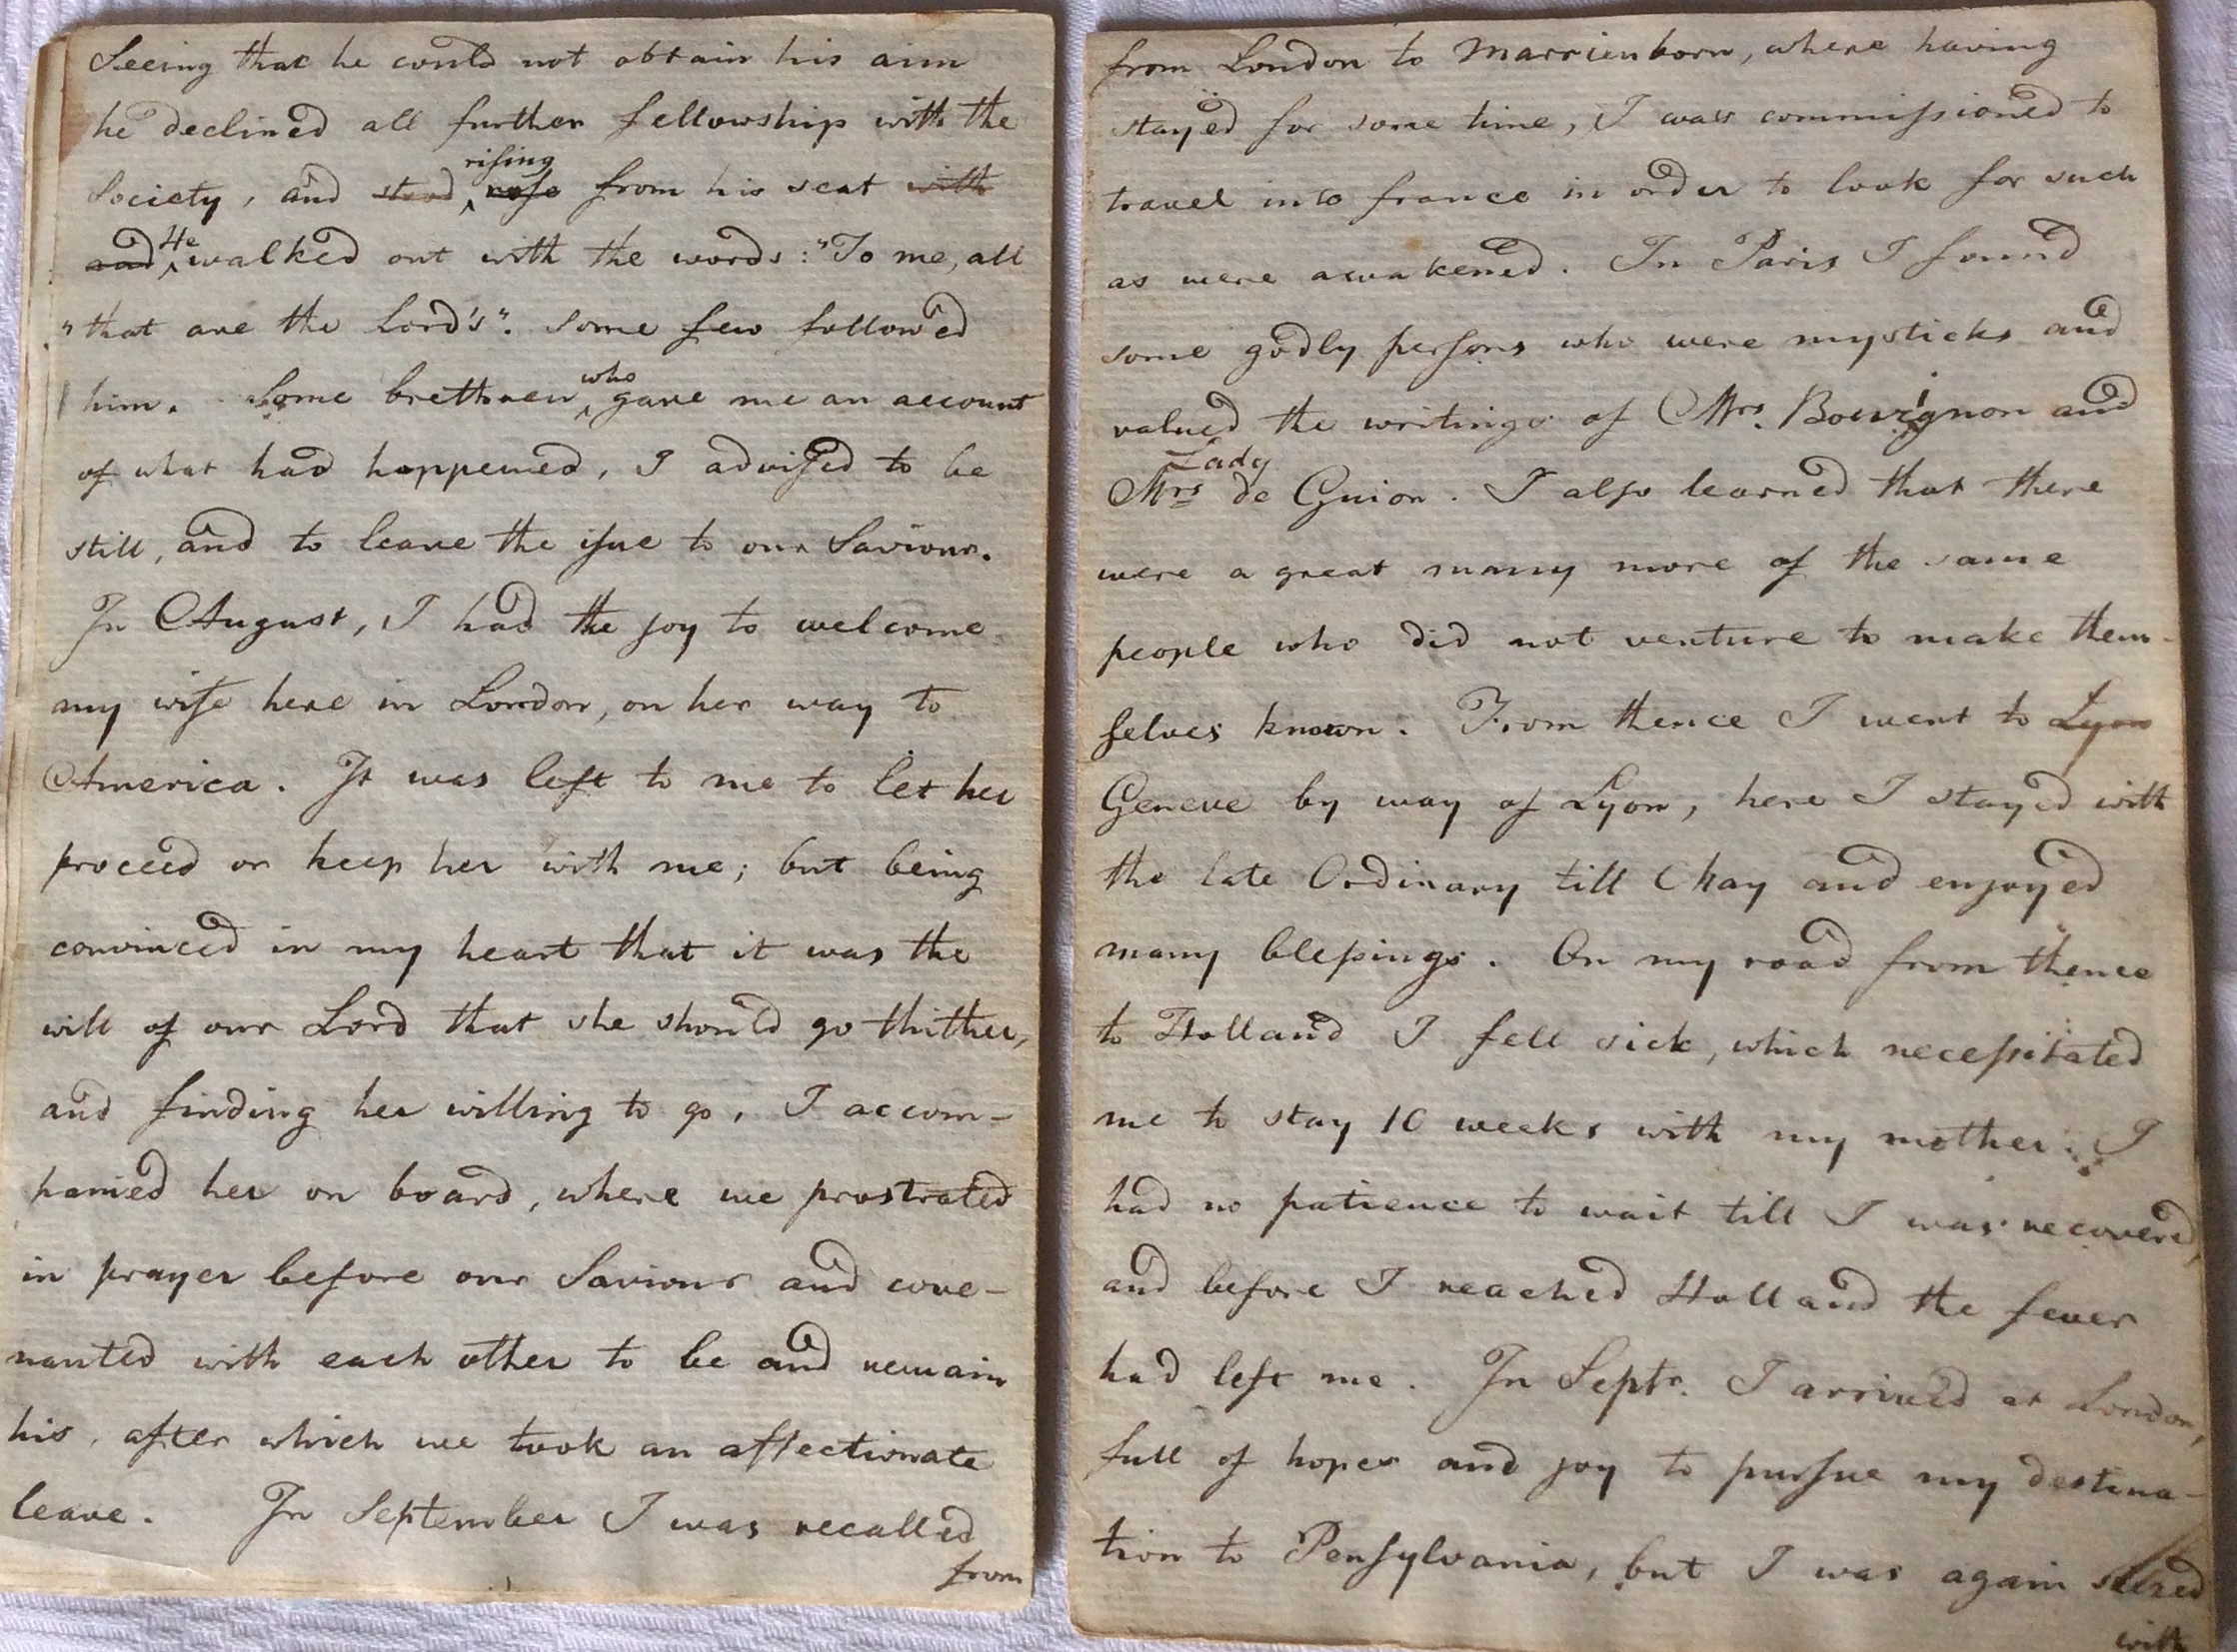 Seeing that he could not obtain his aim
he declined all further fellowship with the
rising
Society, and stood rose from his seat with
and He walked out with the words: "To me, all
"that are the Lord's". some few follow'd
him. Some brethren who gave me an account
of what had happened, I advised to be
still, and to leave the issue to our Saviour.
In August, I had the joy to welcome
my wife here in London, on her way to
America. It was left to me to let her
proceed or keep her with me; but being
convinced in my heart that it was the
will of our Lord that she should go thither,
and finding her willing to go, I accom-
panied her on board, where we prostrated
in prayer before our Saviour and cove-
nanted with each other to be and remain
his, after which we took an affectionate
leave. In September I was recalled
from
from London to Marrienborn, where having
stayed for some time, I was commissioned to
travel into france in order to look for such
as were awakened. In Paris I found
some godly persons who were mysticks and
valued the writings of Mrs. Bourignon and
Lady
Mrs de Guion. I also learned that there
were a great many more of the same
people who did not venture to make them-
selves known. From thence I went to Lyon
Geneve by way of Lyon, here I stayed with
the late Ordinary till May and enjoyed
many blessings. On my road from thence
to Holland I fell sick, which necessitated
me to stay 10 weeks with my mother. I
had no patience to wait till I was recovered,
and before I reached Holland the fever
had left me. In Septr. I arrived at London,
full of hopes and joy to pursue my destina-
tion to Pensylvania, but I was again seized
with